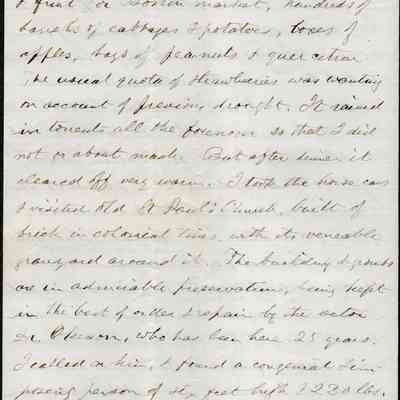 & fruit for Boston market, hundreds of
barrels of cabbages & potatoes, boxes of
apples, bags of peanuts & quercitron
The usual quota of strawberries was wanting
on account of previous drought. It rained
in torrents all the forenoon so that I did
not go about much. But after dinner it
cleared off very warm. I took the horse cars
& visited old St Paul's Church, built of
brick in colonial times, with its venerable
graveyard around it. The building & grounds
are in admirable preservation, being kept
in the best of order & repair by the rector
Dr. Okeson, who has been here 25 years.
I called on him, & found a congenial & im-
posing person of six feet high & 230 lbs.